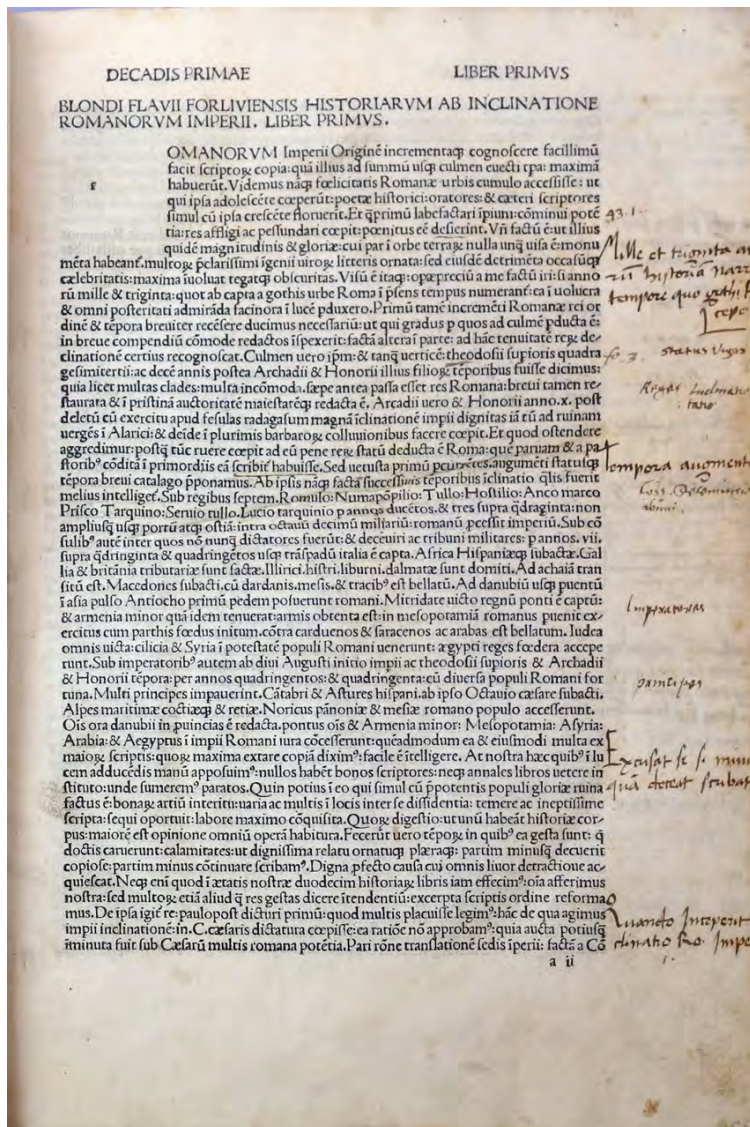 DECADIS PRIMAE LIBER PRIMVS
BLONDI FLAVII FORLIVIENSIS HISTORIARVM AB INCLINATIONE
ROMANORVM IMPERII. LIBER PRIMVS.
r
OMANORVM Imperii Originē incrementaqꝫ cognoscere facillimū
facit scriptoꝝ copia: quā illius ad summū usqꝫ culmen euecti tꝑa: maximā
habuerūt. Videmus nāqꝫ fœlicitatis Romanæ urbis cumulo accessisse: ut
qui ipsa adolescēte cœperūt: poetæ historici: oratores: & cæteri scriptores
simul cū ipsa crescēte floruerīt. Et q̄primū labefactari īpiuni: cōminui potē
tia: res affligi ac pessundari cœpit: pœnitus eē desierint. Vn̄ factū ē: ut illius
quidē magnitudinis & gloriæ: cui par ī orbe terraꝝ nulla unq̄ uisa ē: monu
mēta habeant. multoꝝ p̄clarissimi īgenii uiroꝝ litteris ornata: sed eiusdē detrimēta occasūqꝫ
cælebritatis: maxima īuoluat tegatqꝫ obscuritas. Visū ē itaqꝫ: opæpreciū a me factū iri: si anno
rū mille & triginta: quot ab capta a gothis urbe Roma ī p̄sens tempus numerant: ea ī uolucra
& omni posteritati admirāda facinora ī lucē pduxero. Primū tamē incremēti Romanæ rei or
dinē & tēpora breuiter recēsere ducimus necessariū: ut qui gradus p quos ad culmē pducta ē:
in breue compendiū cōmode redactos īspexerit: factā alterā ī parte: ad hāc tenuitatē reꝝ de-
clinationē certius recognoscat. Culmen uero ipm: & tanq̄ uerticē: theodosii supioris quadra
gesimitertii: ac decē annis postea Archadii & Honorii illius filioꝝ tēporibus fuisse dicimus:
quia licet multas clades: multa incōmoda. sæpe antea passa esset res Romana: breui tamen re-
staurata & ī pristinā auctoritatē maiestatēqꝫ redacta ē. Arcadii uero & Honorii anno. x. post
deletū cū exercitu apud fesulas radagasum magnā īclinationē impii dignitas iā tū ad ruinam
uergēs ī Alarici: & deīde ī plurimis barbaroꝝ colluuionibus facere cœpit. Et quod ostendere
aggredimur: postq̄ tūc ruere cœpit ad eū pene reꝝ statū deducta ē Roma: quē paruam & a pa
storibꝰ cōdita ī primordiis eā scribit habuisse. Sed uetusta primū augumēti statusqꝫ
tēpora breui catalago pponamus. Ab ipsis nāqꝫ facta successīnus tēporibus īclinatio q̄lis fuerit
melius intelligeꝝ. Sub regibus septem. Romulo: Numapōpilio: Tullo: Hostilio: Anco marco
Prisco Tarquino: Seruio tullo. Lucio tarquinio p annos ducētos. & tres supra q̄draginta: non
ampliusqꝫ usqꝫ portū atqꝫ ostiā: intra octauū decimū miliariū: romanū pcessit imperiū. Sub cō
sulibꝰ autē inter quos nō nunq̄ dictatores fuerūt: & deceuiri ac tribuni militares: p annos. vii.
supra q̄dringinta & quadringētos usqꝫ trāspadū italia ē capta. Africa Hispaniæqꝫ subactæ. Gal
lia & britānia tributariæ sunt factæ. Illirici. histri. liburni. dalmatæ sunt domiti. Ad achaiā tran
sitū est. Macedones subacti. cū dardanis. mesis. & tracibꝰ est bellatū. Ad danubiū usqꝫ puentū
ī asia pulso Antiocho primū pedem posuerunt romani. Mitridate uicto regnū ponti ē captū:
& armenia minor quā idem tenuerat: armis obtenta est: in mesopotamiā romanus puenit ex-
ercitus cum parthis fœdus initum. cōtra carduenos & saracenos ac arabas est bellatum. Iudea
omnis uicta: cilicia & Syria ī potestatē populi Romani uenerunt: ægypti reges fœdera accepe
runt. Sub imperatoribꝰ autem ab diui Augusti initio impii ac theodosii supioris & Archadii
& Honorii tēpora: per annos quadringentos: & quadringenta: cū diuersa populi Romani for
tuna. Multi principes impauerint. Cātabri & Astures hispani. ab ipso Octauio cæsare subacti.
Alpes maritimæ coctiæqꝫ & retiæ. Noricus pānoniæ & mesiæ romano populo accesserunt.
Ois ora danubii in puincias ē redacta. pontus oīs & Armenia minor: Mesopotamia: Asyria:
Arabia: & Aegyptus ī impii Romani iura cōcesserunt: quēadmodum ea & eiusmodi multa ex
maioꝝ scriptis: quoꝝ maxima extare copiā diximꝰ: facile ē ītelligere. At nostra hæc quibꝰ ī lu
cem adducēdis manū apposuimꝰ: nullos habēt bonos scriptores: neqꝫ annales libros uetere in
stituto: unde sumeremꝰ paratos. Quin potius ī eo qui simul cū p̄potentis populi gloriæ ruina
factus ē: bonaꝝ artiū interitu: uaria ac multis ī locis inter se dissidentia: temere ac ineptissime
scripta: sequi oportuit: labore maximo cōquisita. Quoꝝ digestio: ut unū habeāt historiæ cor-
pus: maiorē est opinione omniū operā habitura. Fecerūt uero tēpoꝝ in quibꝰ ea gesta sunt: q̄
doctis caruerunt: calamitates: ut dignissima relatu ornatuqꝫ plæraqꝫ: partim minusq̄ decuerit
copiose: partim minus cōtinuare scribamꝰ. Digna pfecto causa cui omnis liuor detractione ac-
quiescat. Neqꝫ eni quod ī ætatis nostræ duodecim historiaꝝ libris iam effecimꝰ: oīa afferimus
nostra: sed multoꝝ etiā aliud q̄ res gestas dicere ītendentiū: excerpta scriptis ordine reforma
mus. De ipsa igit re: paulopost dicturi primū: quod multis placuisse legimꝰ: hāc de qua agimus
impii inclinationē: in. C. cæsaris dictatura cœpisse: ea ratiōe nō approbamꝰ: quia aucta potiusqꝫ
īminuta fuit sub Cæsarū multis romana potētia. Pari rōne translationē sedis īperii: factā a Cō
a ii
43 · 1 ·
Mille et triginta
historia
tempore quo gothi
cepe
status
tempora augment
Imperatores
principes
Excusat se si
quā deceat
Quando Inceperit
clinatio Ro. Impe